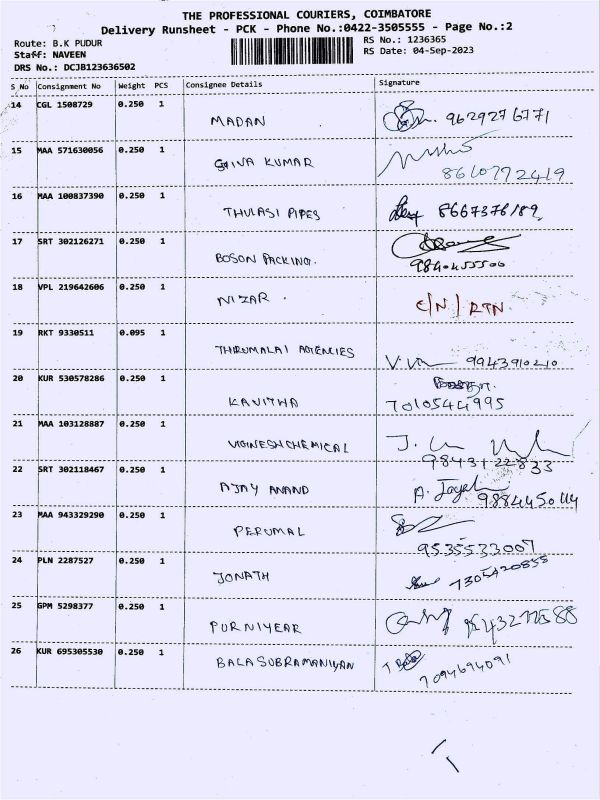 THE PROFESSIONAL COURIERS, COIMBATORE
Delivery Runsheet - PCK - Phone No.:0422-3505555 - Page No.:2
Route: B.K PUDUR
Staff: NAVEEN
DRS No.: DCJB123636502
RS No.: 1236365
RS Date: 04-Sep-2023
S No Consignment No Weight PCS Consignee Details Signature
14 CGL 1508729 0.250 1 MADAN 9629276771
15 MAA 571630056 0.250 1 SHIVA KUMAR 8610772419
16 MAA 100837390 0.250 1 THULASI PIPES 8667376189
17 SRT 302126271 0.250 1 BOSON PACKING. 9840455500
18 VPL 219642606 0.250 1 NIZAR. C/N/RTN
19 RKT 9330511 0.095 1 THIRUMALAI AGENCIES 9943910210
20 KUR 530578286 0.250 1 KAVITHA 7010544995
21 MAA 103128887 0.250 1 VIGINESH CHEMICAL 9843122833
22 SRT 302118467 0.250 1 AJAY ANAND
23 MAA 943329290 0.250 1 PERUMAL 9535533007
24 PLN 2287527 0.250 1 JONATH 7305420855
25 GPM 5298377 0.250 1 PURNIYEAR
26 KUR 695305530 0.250 1 BALASUBRAMANIYAN 7094694091